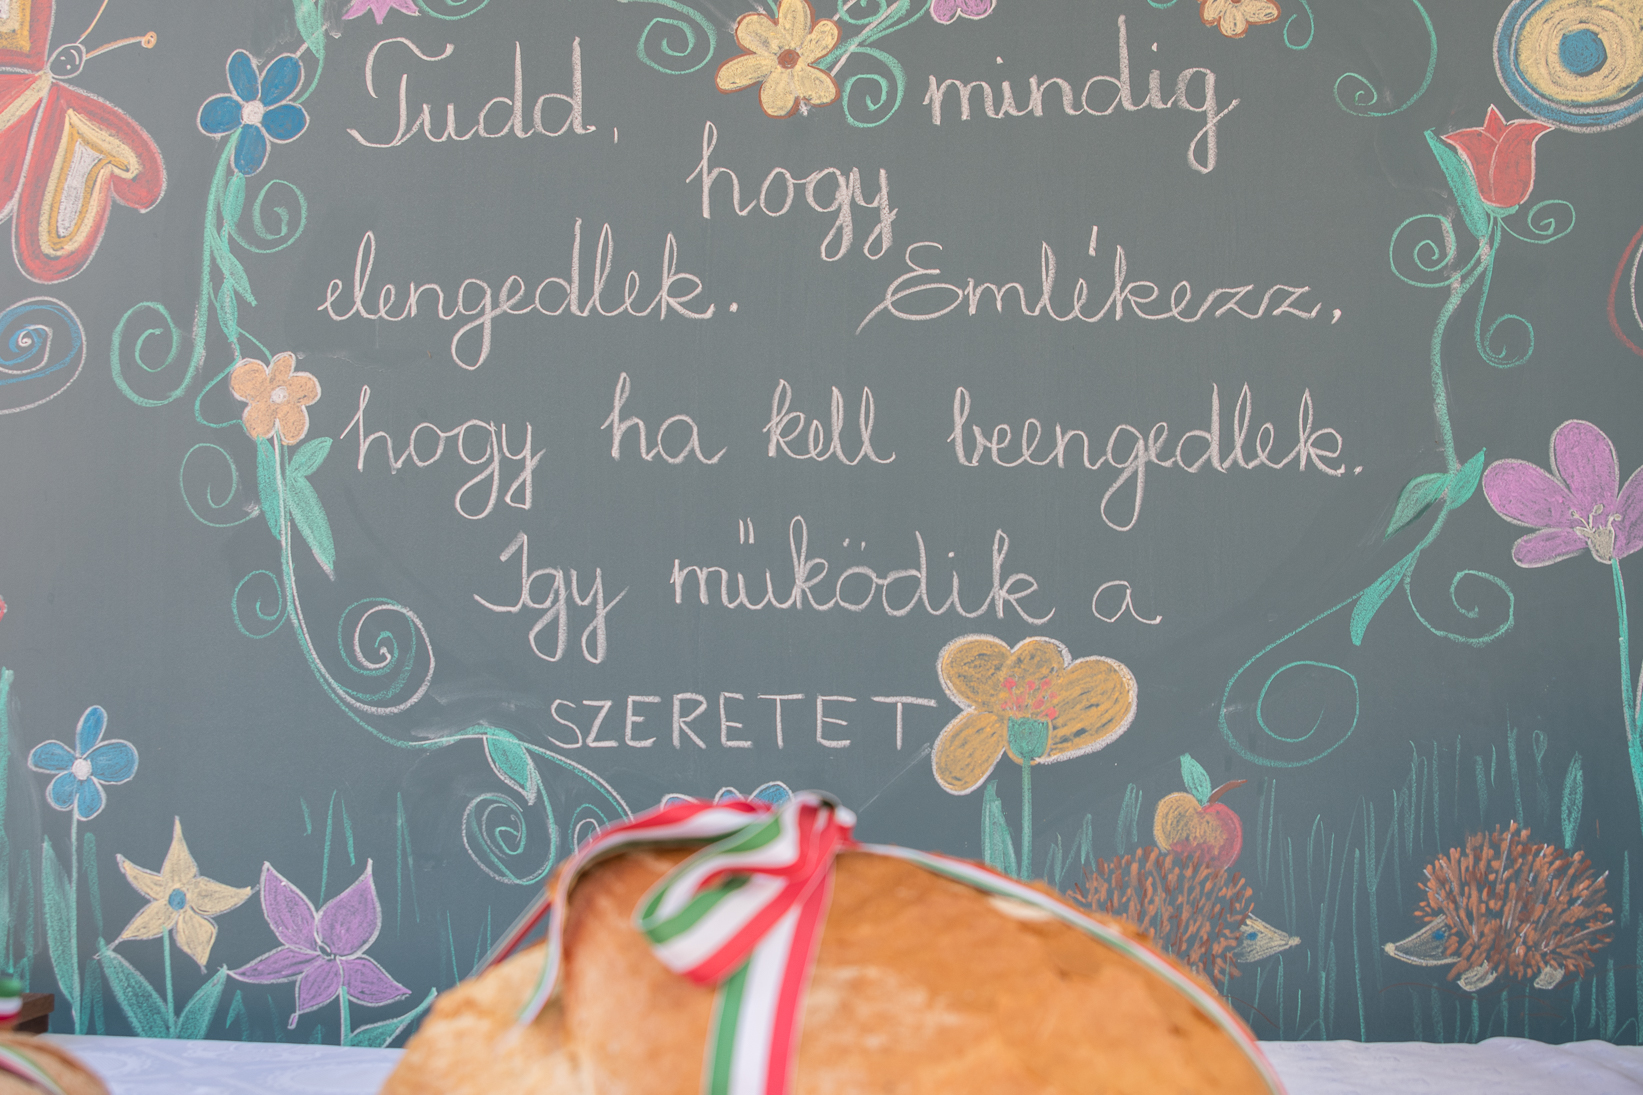 Tudd, hogy mindig
elengedlek. Emlékezz,
hogy ha kell beengedlek.
Így működik a
SZERETET